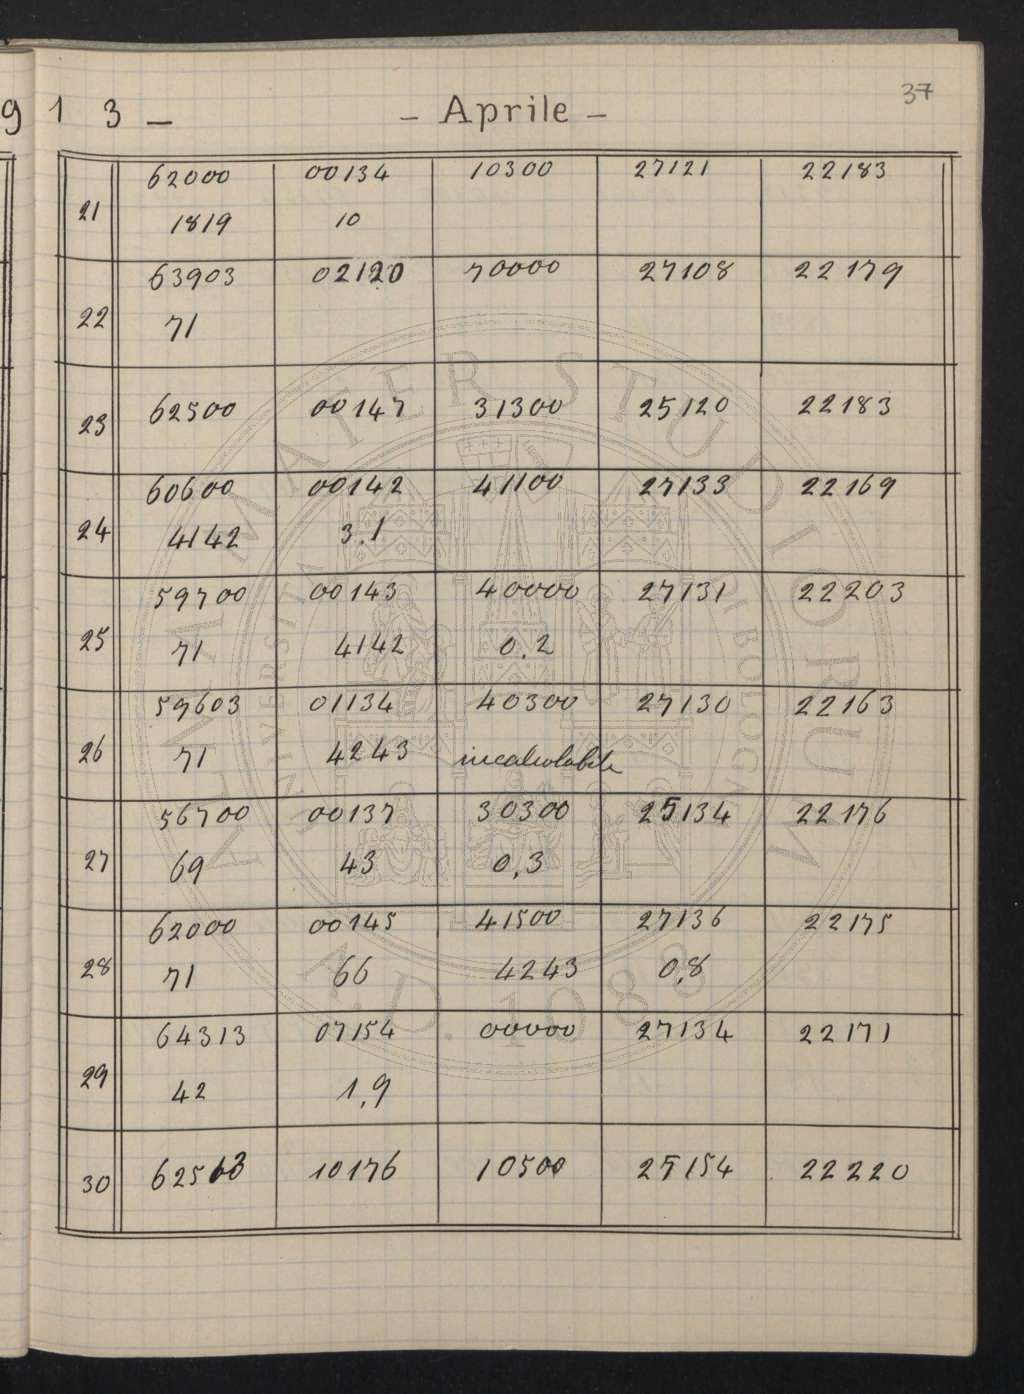 37
9 1 3 — – Aprile –
62000 00134 10300 27121 22183
21
1819 10
63903 02120 70000 27108 22179
22
71
23 62500 00147 31300 25120 22183
60600 00142 41100 27133 22169
24
4142 3.1
59700 00143 40000 27131 22203
25
71 4142 0.2
59603 01134 40300 27130 22163
26
71 4243 incalcolabile
56700 00137 30300 25134 22176
27
69 43 0,3
62000 00145 41500 27136 22175
28
71 66 4243 0,8
64313 07154 00000 27134 22171
29
42 1,9
30 10176 10500 25154 22220
ALMA MATER STUDIORUM
UNIVERSITÀ DI BOLOGNA
A.D. 1088